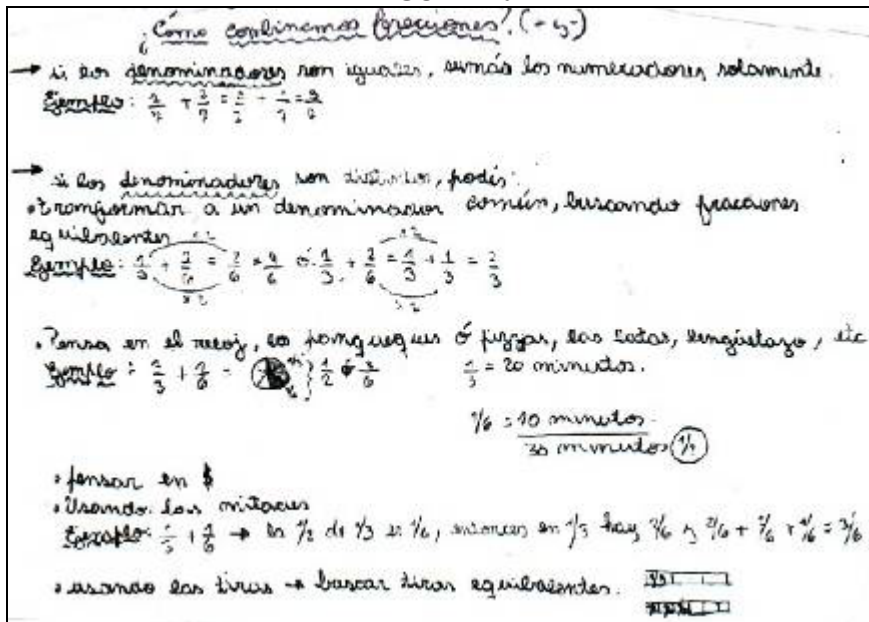 ¿Cómo conbinamos fracciones? (+ y -)
→ si los denominadores son iguales, sumás los numeradores solamente.
Ejemplo:
→ si los denominadores son distintos, podés:
• tranformar a un denominador común, buscando fracciones
equibalentes
Ejemplo: 1/3 + 2/6 = 1/3 + 1/3 = 2/3
• Pensa en el reloj, los panqueques ó pizzas, las etc
Ejemplo: 1/3 + 1/6 = 1/2 ó 3/6 1/3 = 20 minutos.
1/6 = 10 minutos
30 minutos 1/2
• pensar en $
• Usando las mitades
Ejemplo: 1/3 + 1/6 → la 1/2 de 1/3 es 1/6, entonces en 1/3 hay 2/6 y 2/6 + 1/6 = 3/6
• usando las tiras → buscar tiras equibalentes.